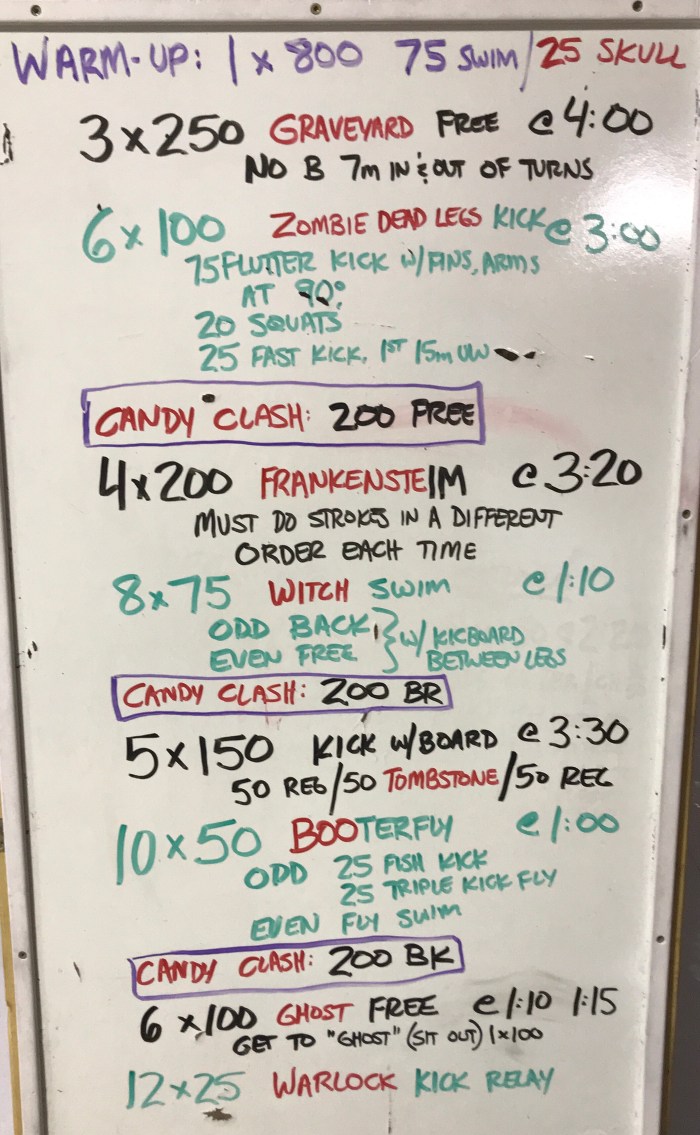 WARM-UP: 1 x 800 75 SWIM/25 SKULL
3x250 GRAVEYARD FREE @ 4:00
NO B 7m IN & OUT OF TURNS
6x100 ZOMBIE DEAD LEGS KICK @ 3:00
75 FLUTTER KICK W/FINS, ARMS
AT 90°
20 SQUATS
25 FAST KICK, 1ST 15m UW
CANDY CLASH: 200 FREE
4x200 FRANKENSTEIM @ 3:20
MUST DO STROKES IN A DIFFERENT
ORDER EACH TIME
8x75 WITCH SWIM @ 1:10
ODD BACK } W/KICBOARD
EVEN FREE } BETWEEN LEGS
CANDY CLASH: 200 BR
5x150 KICK W/BOARD @ 3:30
50 REG/50 TOMBSTONE/50 REG
10x50 BOOTERFLY @ 1:00
ODD 25 FISH KICK
25 TRIPLE KICK FLY
EVEN FLY SWIM
CANDY CLASH: 200 BK
6 x100 GHOST FREE @ 1:10 1:15
GET TO "GHOST" (SIT OUT) 1x100
12x25 WARLOCK KICK RELAY